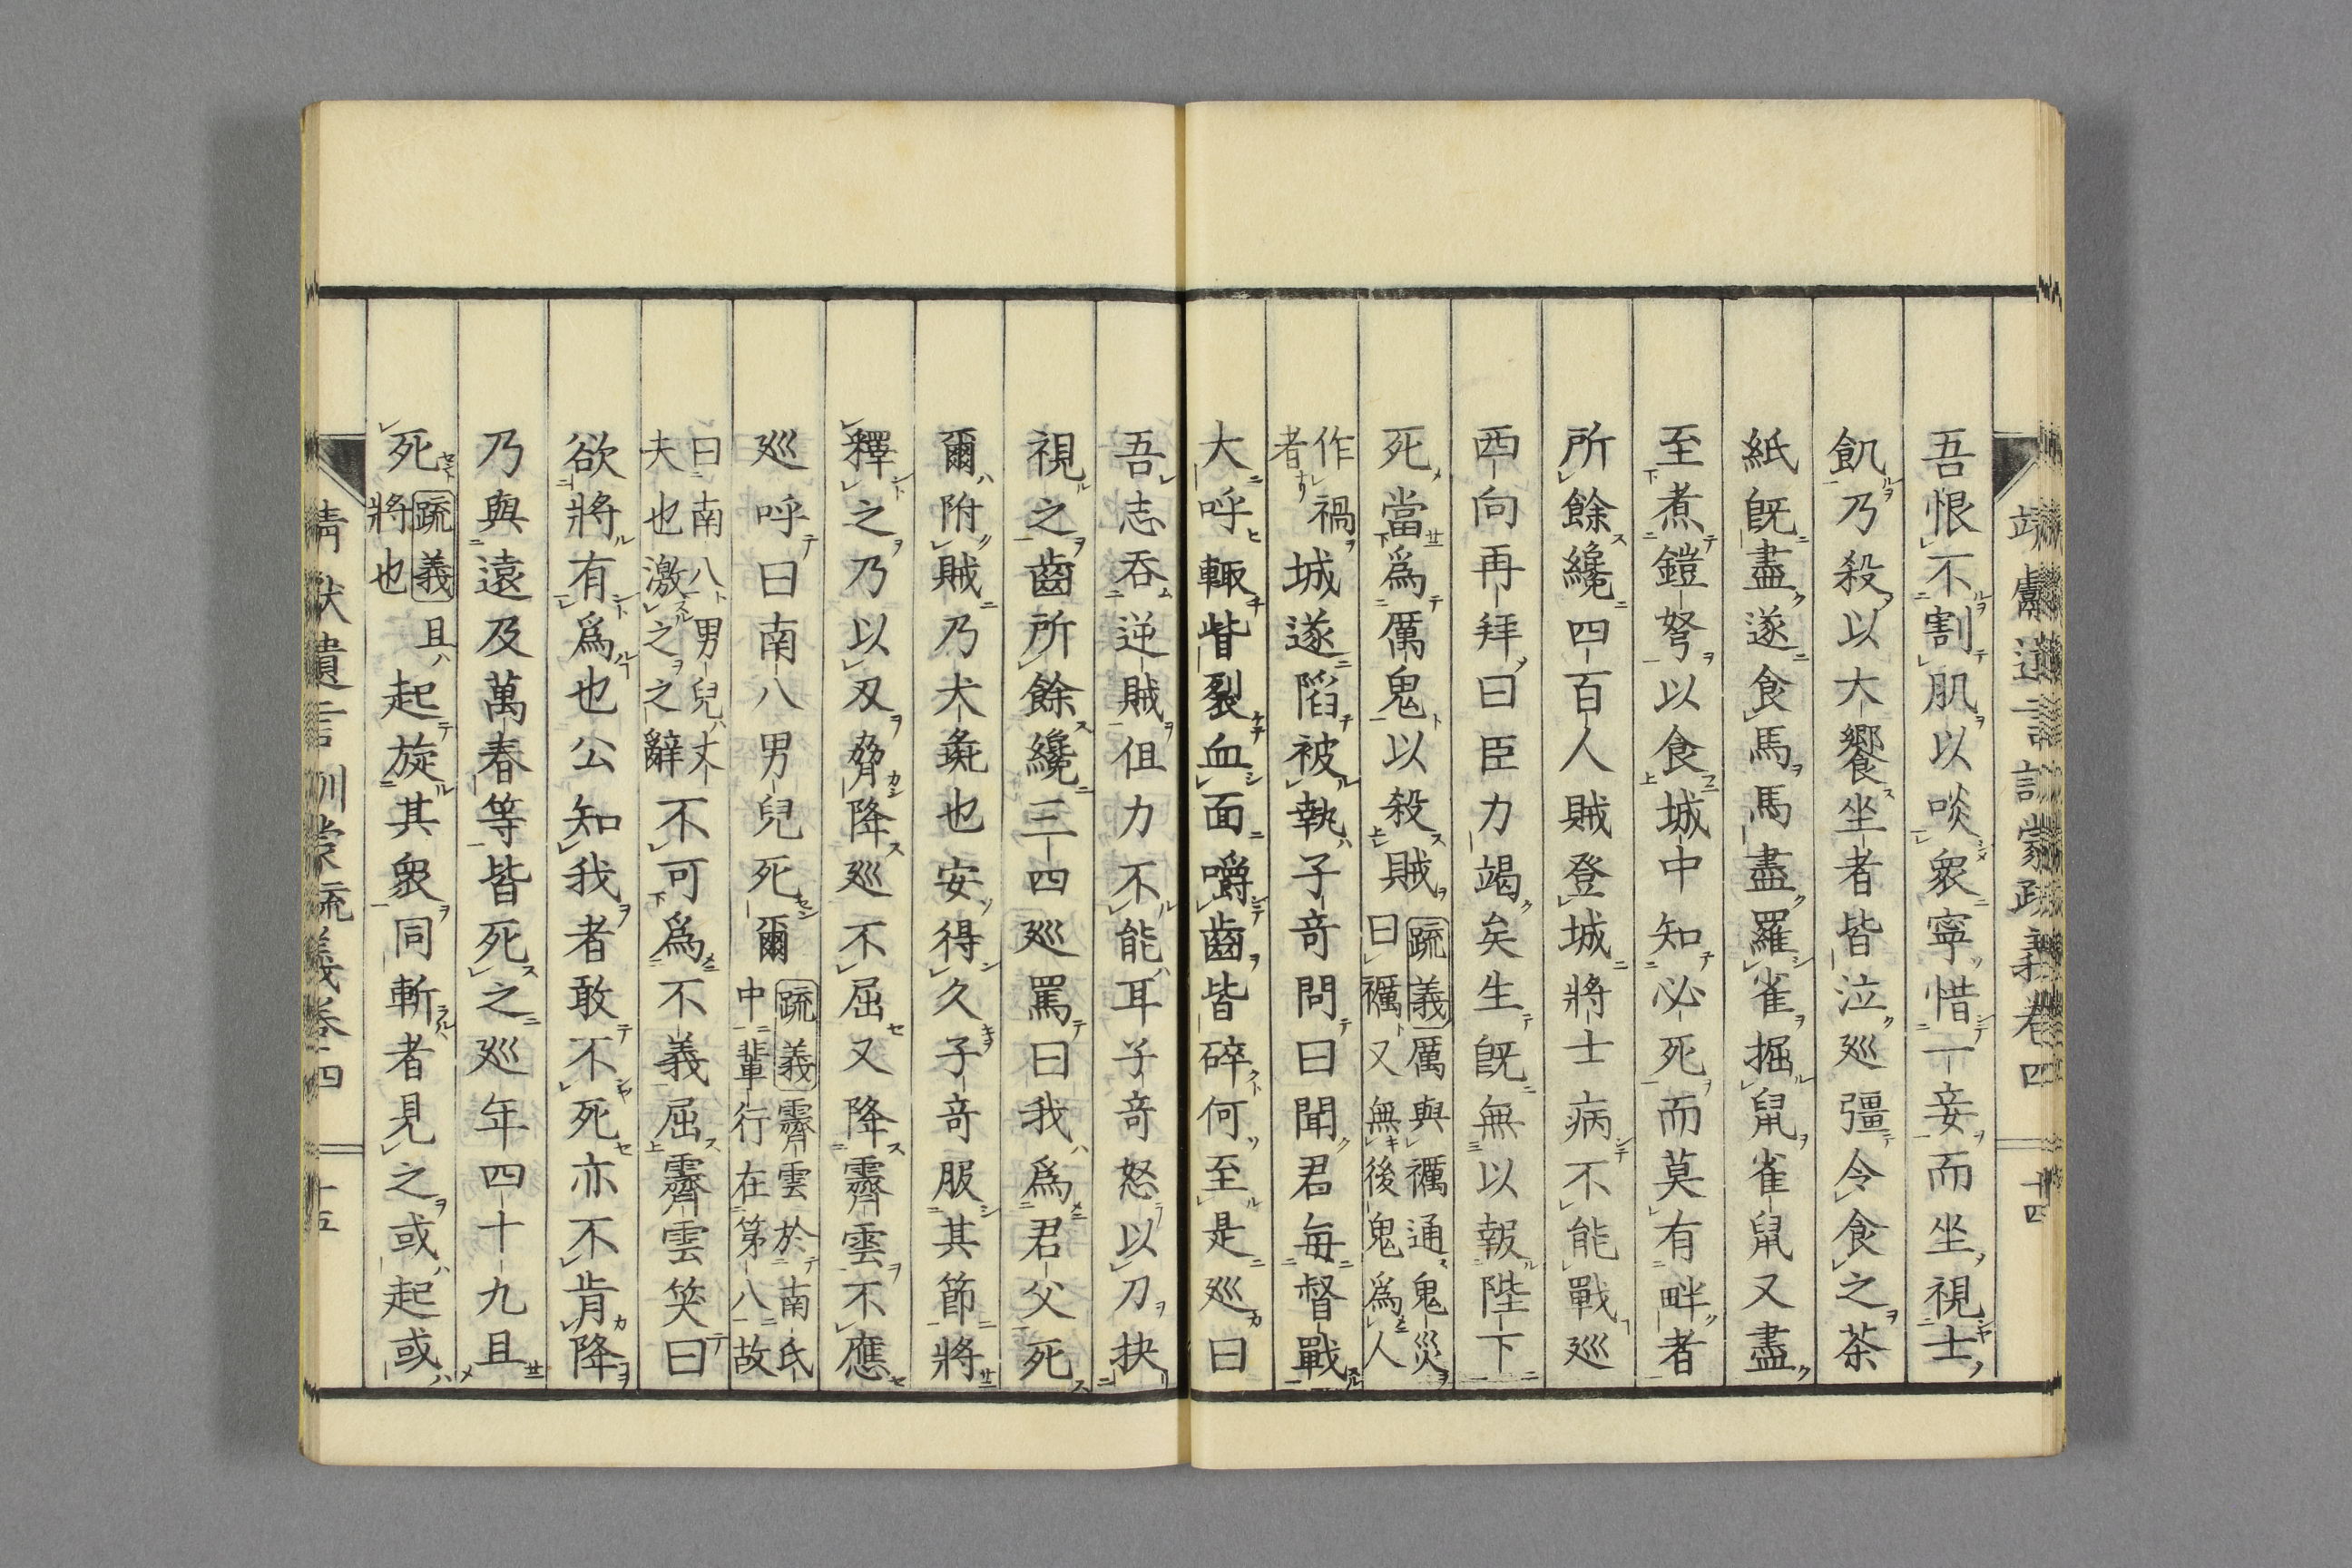 吾恨不割肌以啖衆寧惜一妾而坐視士
飢乃殺以大饗坐者皆泣廵彊令食之茶
紙既盡遂食馬馬盡羅雀掘鼠雀鼠又盡
至煮鎧弩以食城中知必死而莫有畔者
所餘纔四百人賊登城將士病不能戰廵
西向再拜曰臣力竭矣生既無以報陛下
死當爲厲鬼以殺賊 疏義厲與禲通鬼災
曰禲又無後鬼爲人
作禍
者
城遂陷被執子竒問曰聞君毎督戰
大呼輙眥裂血面嚼齒皆碎何至是廵曰
吾志吞逆賊伹力不能耳子竒怒以刀抉
視之齒所餘纔三四廵罵曰我爲君父死
爾附賊乃犬彘也安得久子竒服其節將
釋之乃以刄脅降廵不屈又降霽雲不應
廵呼曰南八男兒死爾 疏義霽雲於南氏
中輩行在第八故
曰南八男兒丈
夫也激之之辭
不可爲不義屈霽雲笑曰
欲將有爲也公知我者敢不死亦不肯降
乃與遠及萬春等皆死之廵年四十九且
死 疏義且
將也
起旋其衆同斬者見之或起或
靖獻遺言訓蒙疏義卷四 十四
靖獻遺言訓蒙疏義卷四 十五